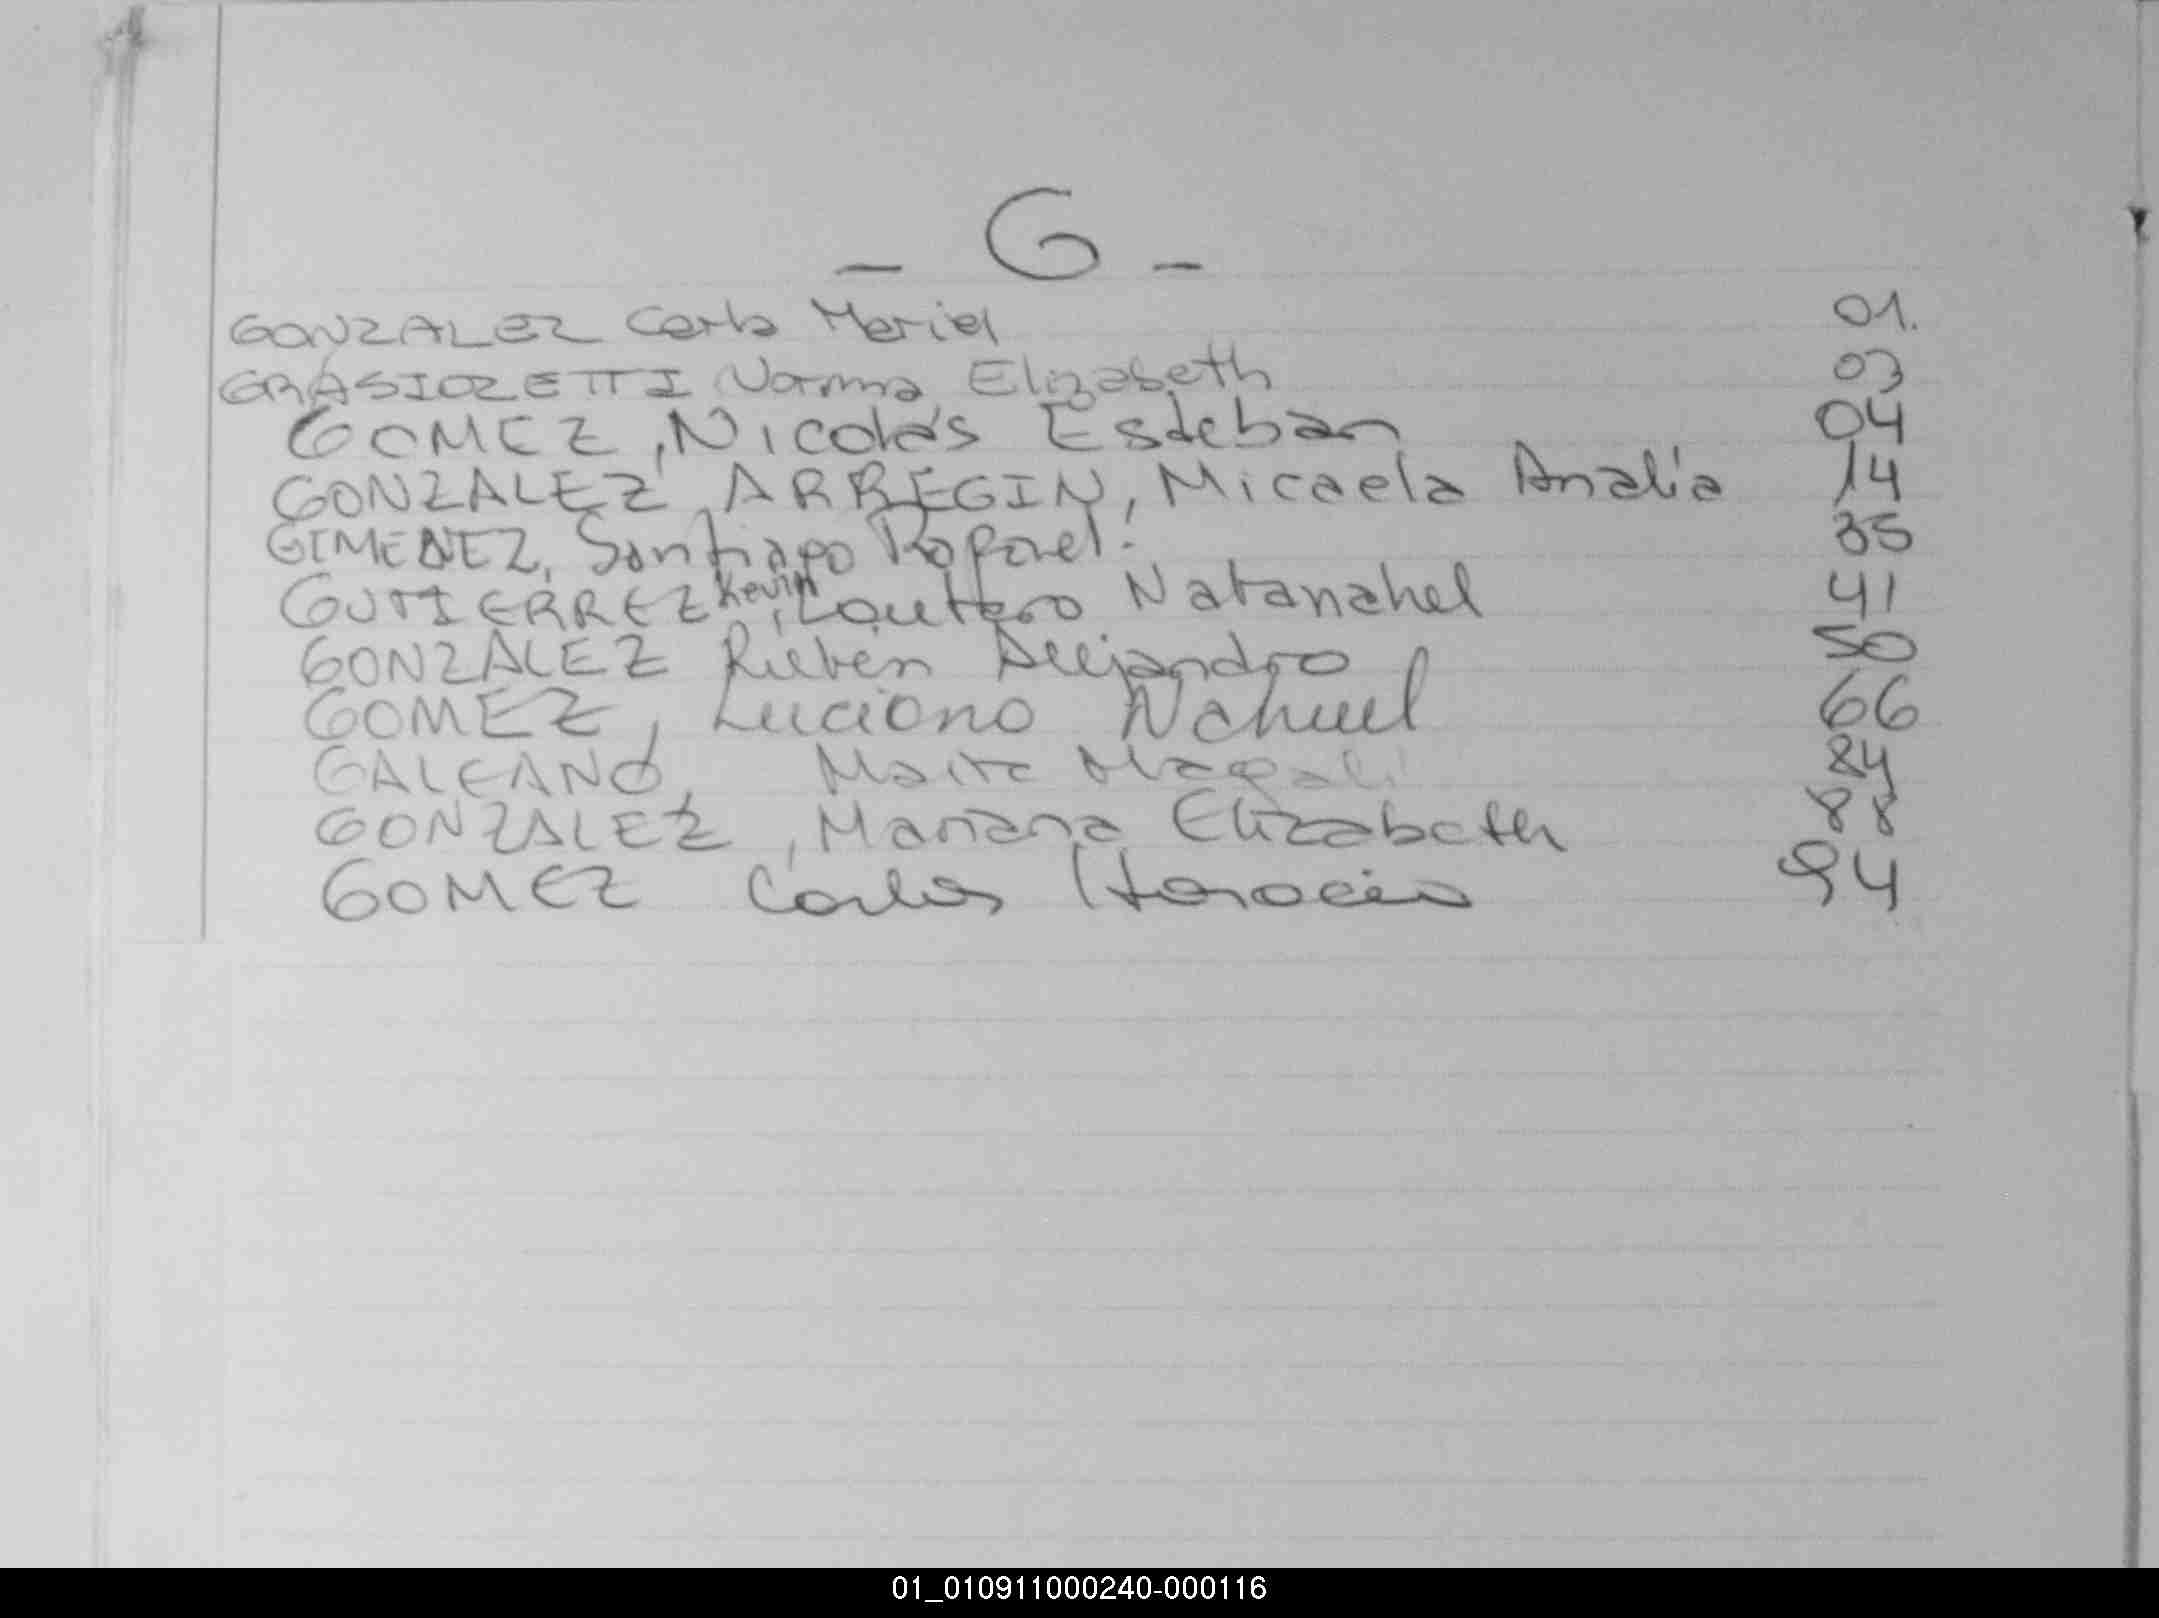 - G -
GONZALEZ Carla Mariel 01.
GRASIOZETTI Norma Elizabeth 03
GOMEZ, Nicolás Esteban 04
GONZALEZ ARREGIN, Micaela Analía 14
GIMENEZ, Santiago Rafael. 35
GUTIERREZ Kevin, Lautero Natanahel 41
GONZALEZ Ruben Alejandro 50
GOMEZ, Luciano Nahuel 66
GALEANO, Maite Magali 84
GONZALEZ, Mariana Elizabeth 88
GOMEZ Carlos Horacio 94
01_010911000240-000116